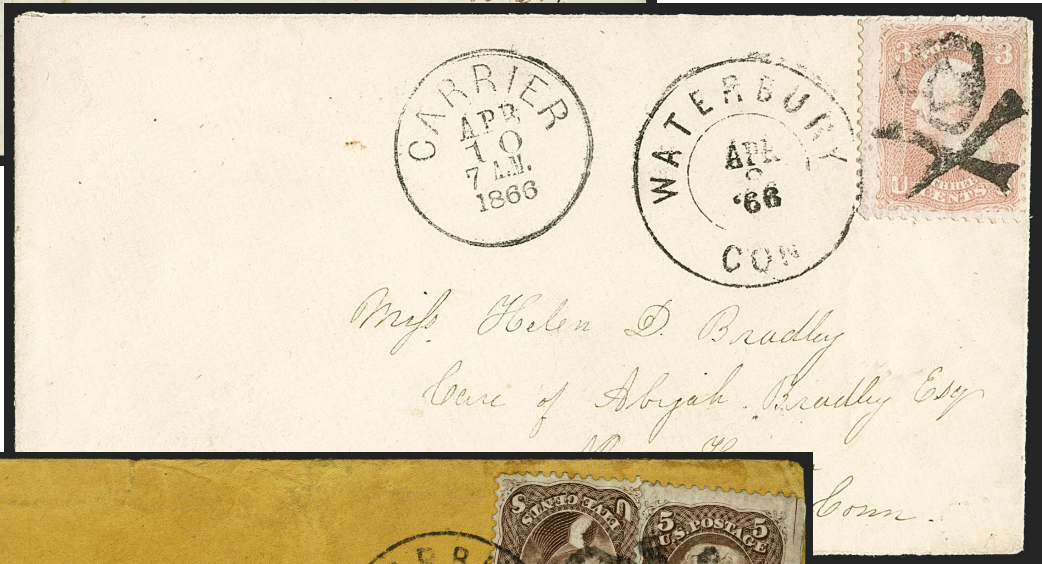 CARRIER
APR
10
7 A.M.
1866
WATERBURY
APR
'66
CON
3 3
U CENTS
Miss Helen D. Bradley
Care of Abijah Bradley Esq
Conn.
FIVE CENTS
U
S
5 5
U.S. POSTAGE